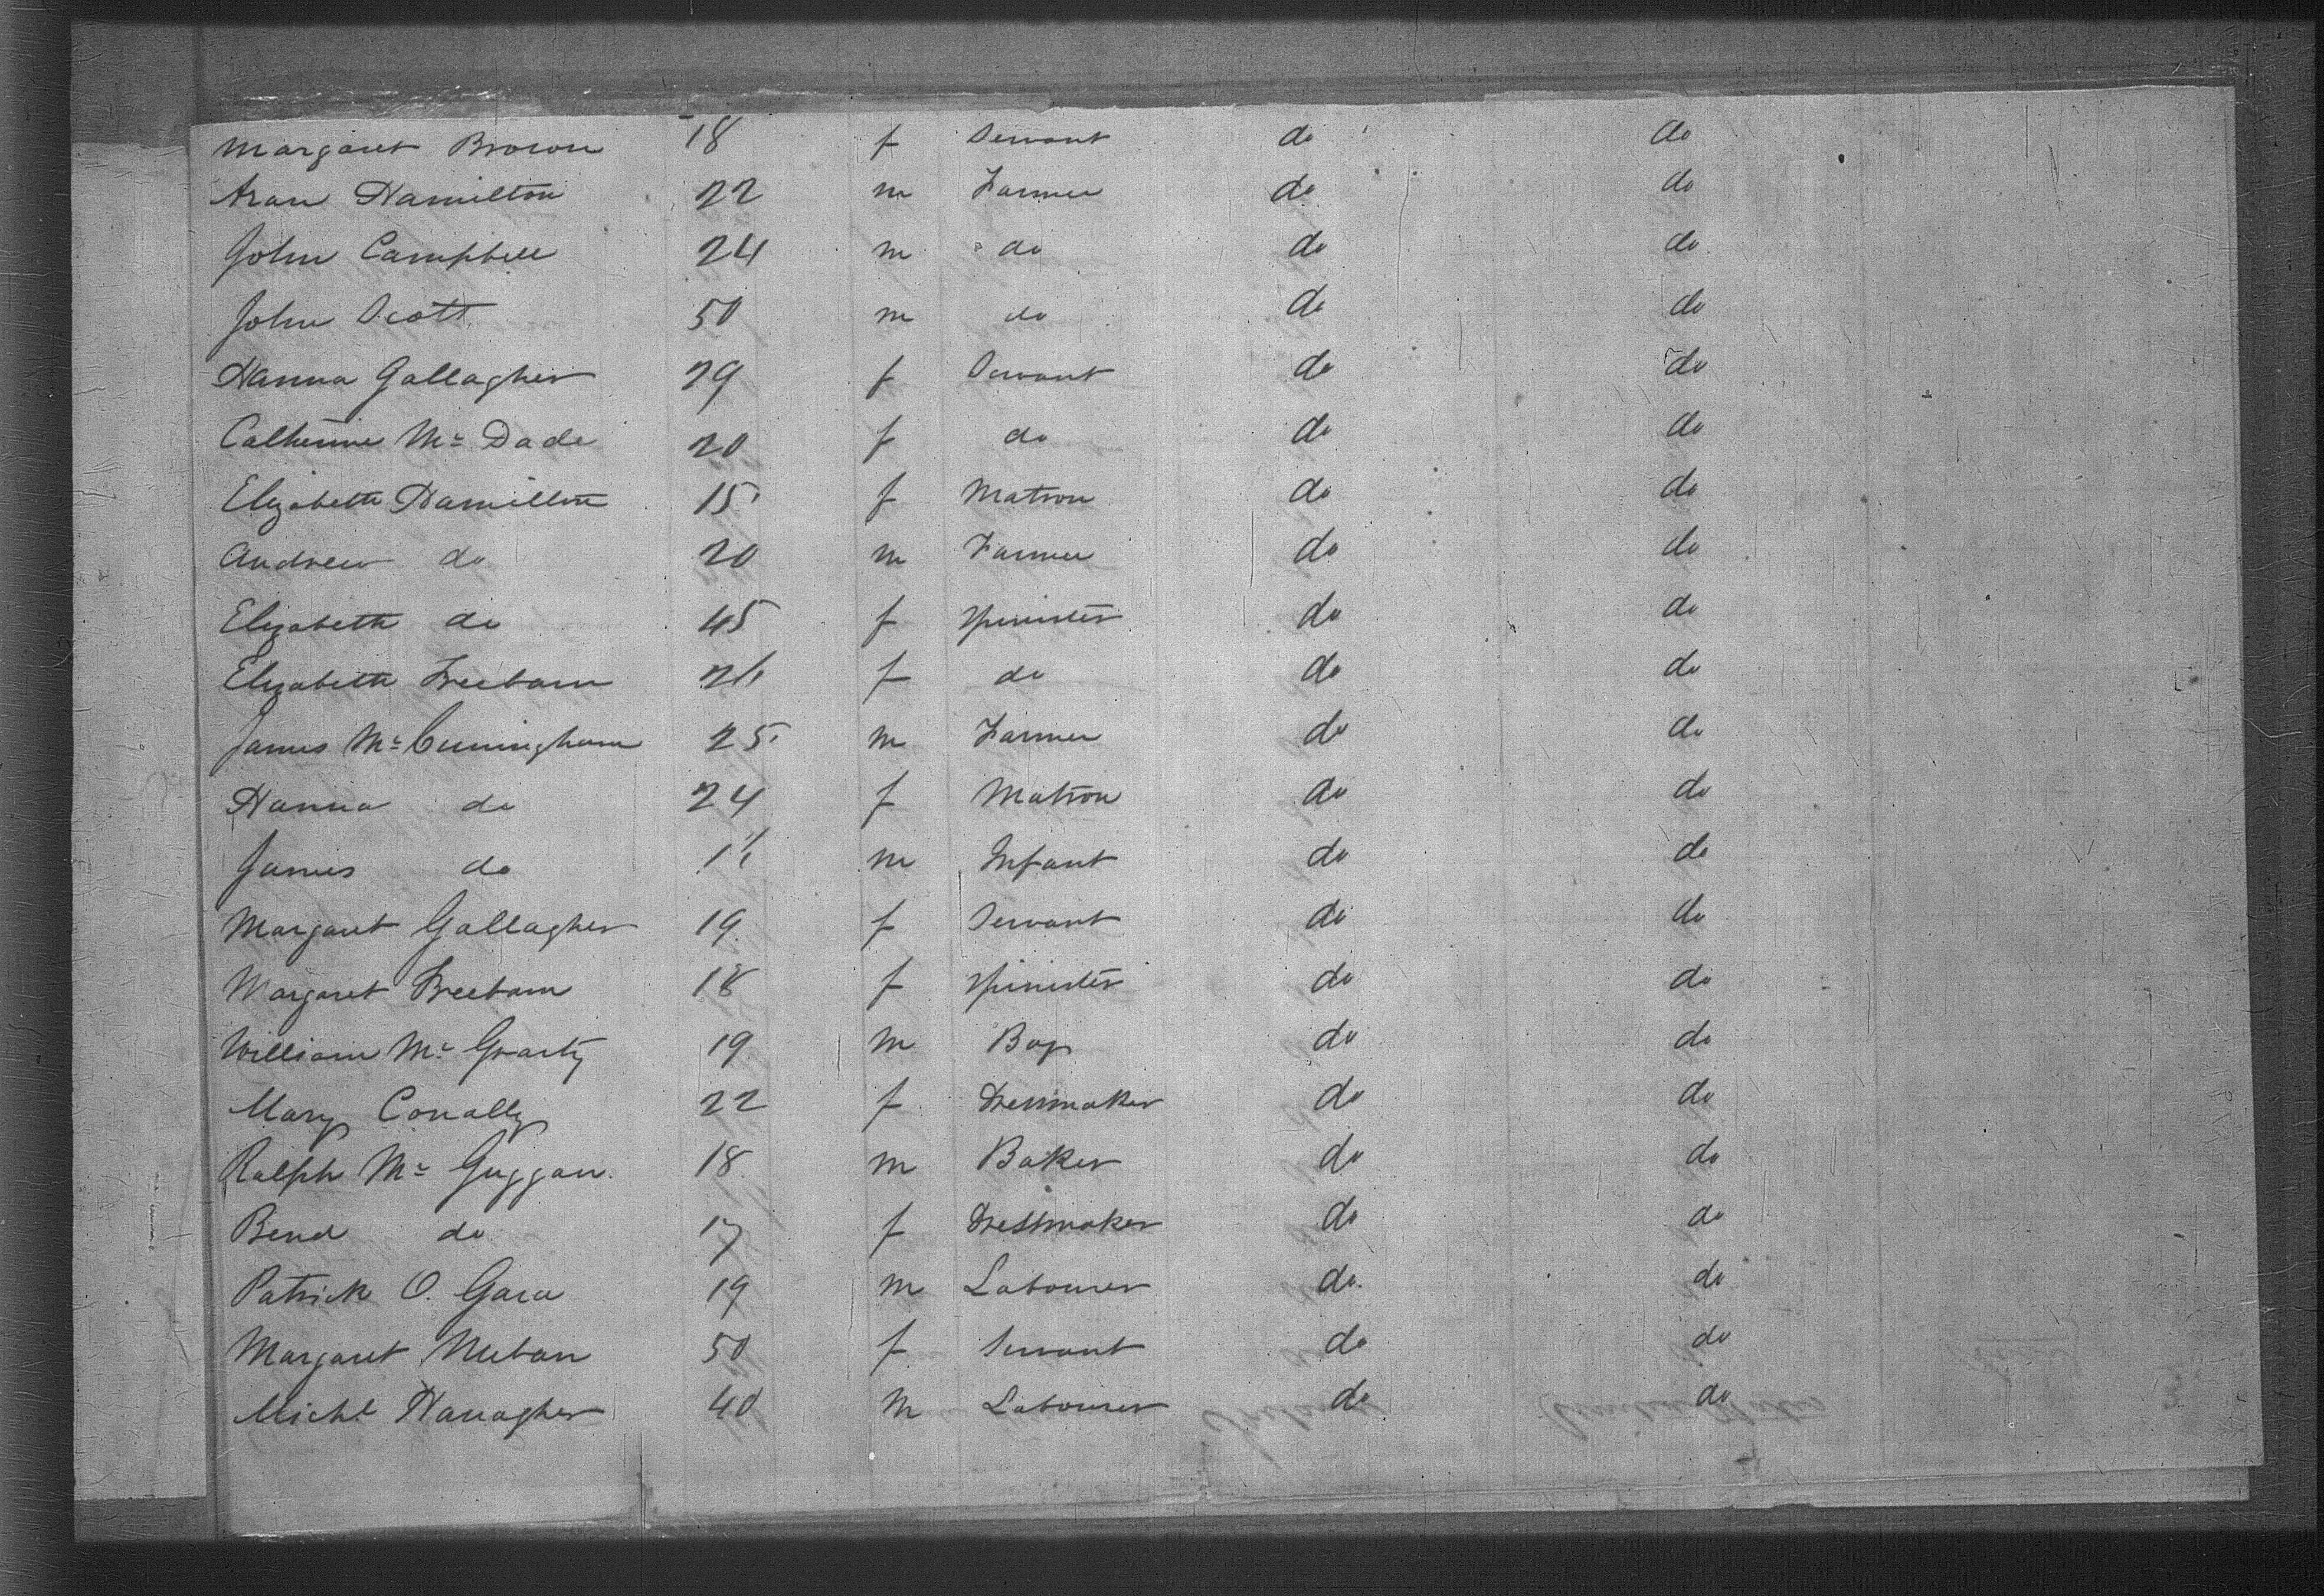 Margaret Brown 18 f Servant do do
Aran Hamilton 22 m Farmer do do
John Campbell 24 m do do do
John Scott 50 m do do do
Hanna Gallagher 29 f Servant do do
Catherine Mc Dade 20 f do do do
Elizabeth Hamilton 15 f Matron do do
Andrew do 20 m Farmer do do
Elizabeth do 45 f Spinster do do
Elizabeth Freebarn f do do do
James Mc Cuningham 25 m Farmer do do
Hanna do 24 f Matron do do
James do m Infant do do
Margaret Gallagher 19 f Servant do do
Margaret Freebarn 18 f Spinster do do
William Mc Grarty 19 m Boy do do
Mary Conally 22 f Dressmaker do do
Ralph Mc Guggan 18 m Baker do do
Bend do 17 f Dressmaker do do
Patrick O. Gara 19 m Labourer do do
Margaret Meban 50 f Servant do do
Michl Hanagher 40 m Labourer do do